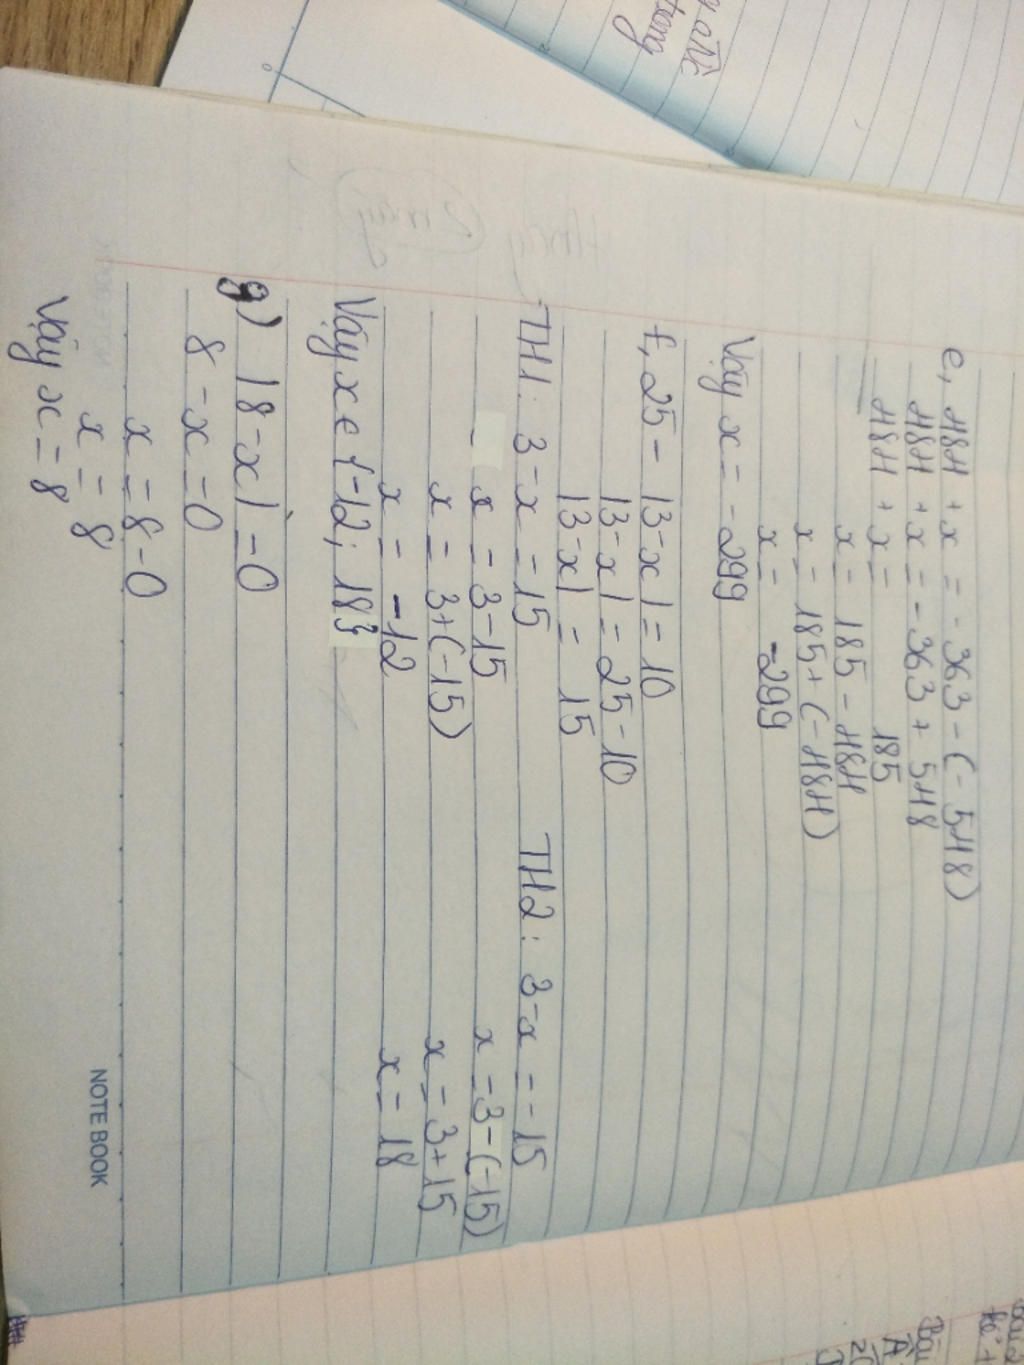 e, 484 + x = -363 - (-548)
484 + x = -363 + 548
484 + x = 185
x = 185 - 484
x = 185 + (-484)
x = -299
Vậy x = -299
f, 25 - |3-x| = 10
|3-x| = 25-10
|3-x| = 15
TH1: 3-x = 15 TH2: 3-x = -15
x = 3-15 x = 3-(-15)
x = 3+(-15) x = 3+15
x = -12 x = 18
Vậy x ∈ {-12; 18}
g) |8-x| = 0
8-x = 0
x = 8-0
x = 8
Vậy x = 8
NOTE BOOK